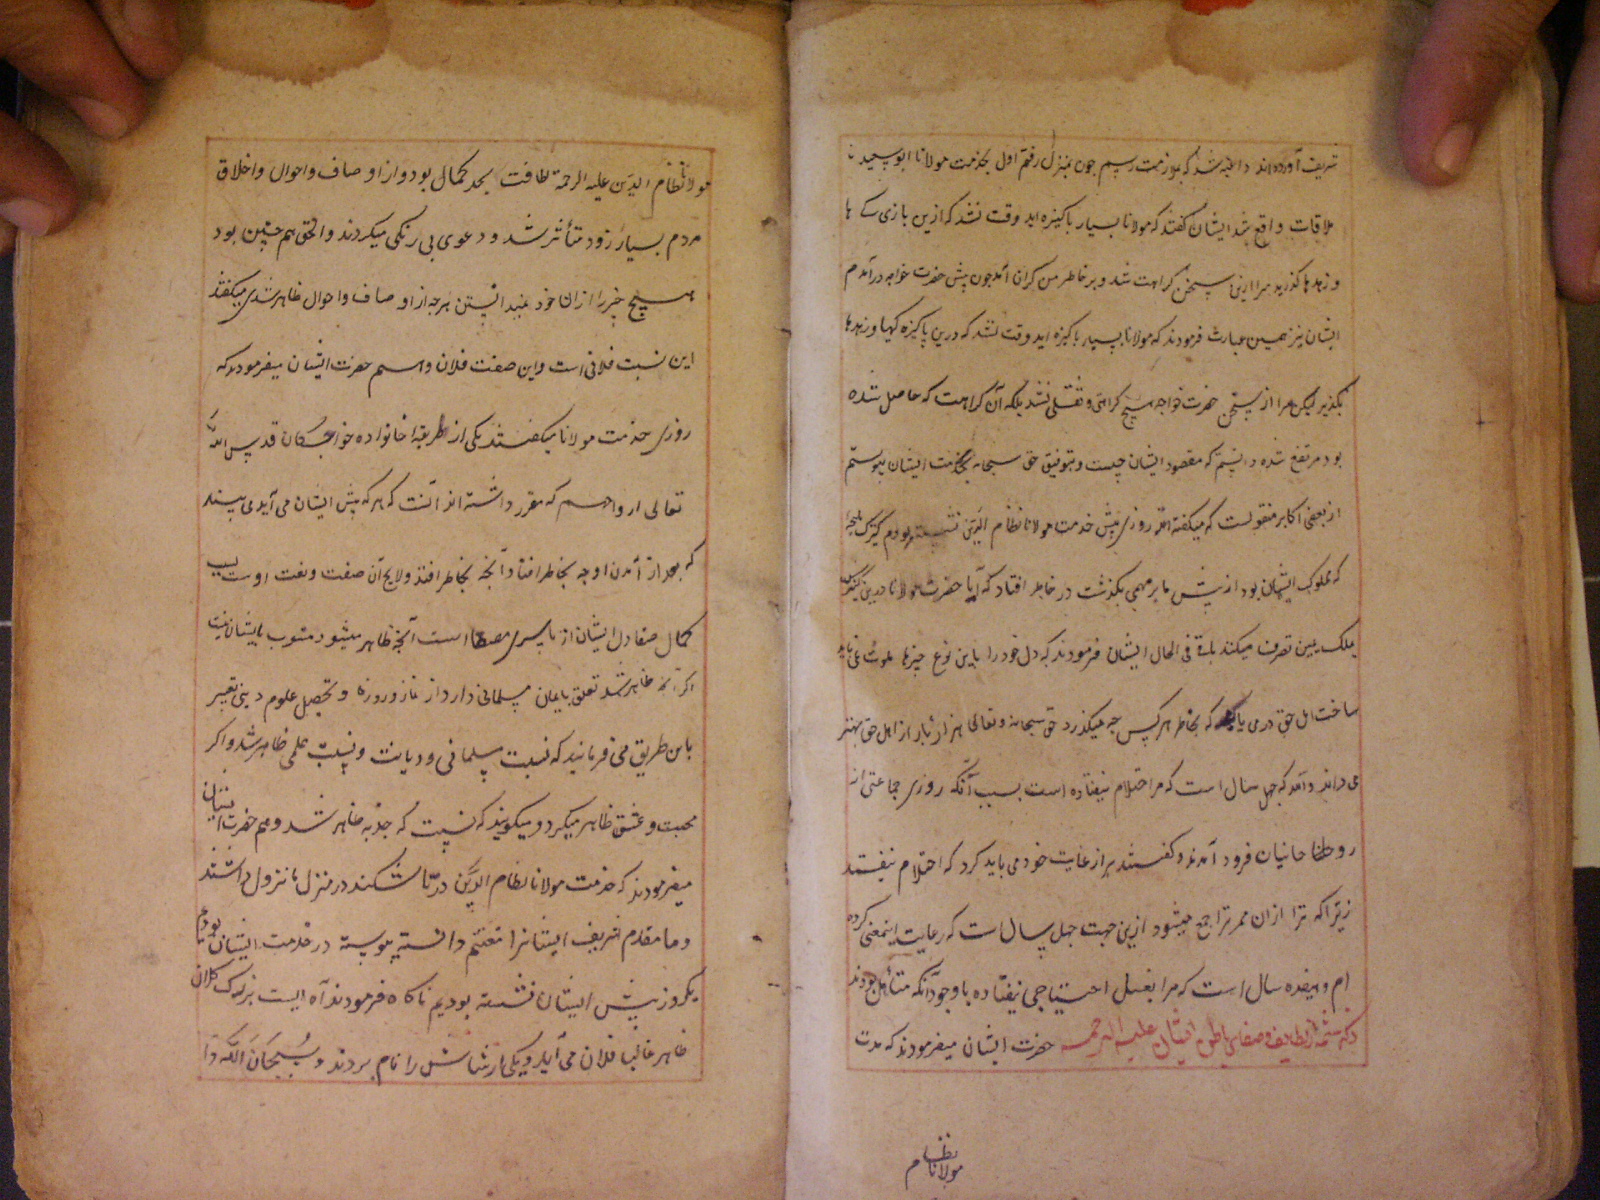 تشریف آورده‌اند داعیه شد که بملازمت رسیم چون بمنزل رفتم اول بخدمت مولانا ابو سعید
ملاقات واقع شد ایشان گفتند که مولانا بسیار پاکیزه اید وقت نشد که ازین بازی ها
و زهدها گذرید مرا ازین سخن کراهت شد و بر خاطر من گران آمد چون پیش حضرت خواجه درآمدم
ایشان نیز همین عبارت فرمودند که مولانا بسیار پاکیزه اید وقت نشد که درین پاکیزه کیها و زهدها
بگذرید لیکن مرا از سخن حضرت خواجه هیچ کراهتی و ثقلی نشد بلکه آن کراهت که حاصل شده
بود مرتفع شده دانستم که مقصود ایشان چیست و بتوفیق حق سبحانه بخدمت ایشان پیوستم
از بعضی اکابر منقولست که میگفته اند روزی پیش خدمت مولانا نظام الدین نشسته بودم کنیزک
که مملوک ایشان بود از پیش ما بر مهمی بگذشت در خاطر افتاد که آیا حضرت مولانا
بملک یمین تصرف میکنند یا نه فی الحال ایشان فرمودند که دل خود را باین نوع چیزها ملوث نمی باید
ساخت اهل حق در می یابند که بخاطر هر کس چه میگذرد حق سبحانه و تعالی هزار بار از اهل حق بهتر
می داند و آمد که چهل سال است که مرا احتلام نیفتاده است بسبب آنکه روزی جماعتی از
روحانیان فرود آمدند و گفتند برا رعایت خود می باید کرد که احتلام نیفتد
زیرا که ترا ازان ممر تراجع میشود ازین جهت چهل سال است که رعایت اینمعنی کرده
ام و هیفده سال است که مرا بغسل احتیاجی نیفتاده با وجود آنکه متأهل بودند
ذکر شمهٔ از لطایف و صفای باطن ایشان علیه الرحمه حضرت ایشان میفرمودند که خدمت
مولانا نظام
مولانا نظام الدین علیه الرحمة لطافت بحد کمال بود و از اوصاف و احوال و اخلاق
مردم بسیار زود متأثر شد و دعوی بی رنگی میکردند و الحق هم چنین بود
هیچ چیز را ازان خود نمیدانستن هر چه از اوصاف و احوال ظاهر شدی میگفتند
این نسبت فلانی است و این صفت فلان و هم حضرت ایشان میفرمودند که
روزی خدمت مولانا میگفتند یکی از طریقهٔ خانواده خواجگان قدس الله
تعالی ارواحهم که مقرر داشته اند آنست که هر که پیش ایشان می آید می بینند
که بعد از آمدن او چه بخاطر افتاد آنچه بخاطر افتد و لایح آن صفت و نعت اوست بسبب
کمال صفا دل ایشان از ماسوی مصفا است آنچه ظاهر میشود منسوب بایشان نیست
اگر آنچه ظاهر شد تعلق بایمان مسلمانی دارد از نماز و روزه و تحصیل علوم دینی تعبیر
باین طریق می فرمایند که نسبت مسلمانی و دیانت و نسبت علمی ظاهر شد و اگر
محبت و عشق ظاهر میکرد و میگویند که نسبت که جذبه ظاهر شد و هم حضرت ایشان
میفرمودند که خدمت مولانا نظام الدین در تاشکند در منزل ما نزول داشتند
و ما مقدم شریف ایشانرا مغتنم دانسته پیوسته در خدمت ایشان بودیم
یکروز پیش ایشان نشسته بودیم ناگاه فرمودند آه ایست بزرگ کلان
ظاهر غالبا فلان می آید و یکی از شاش را نام بردند و سُبحَانَ اللَّه دا